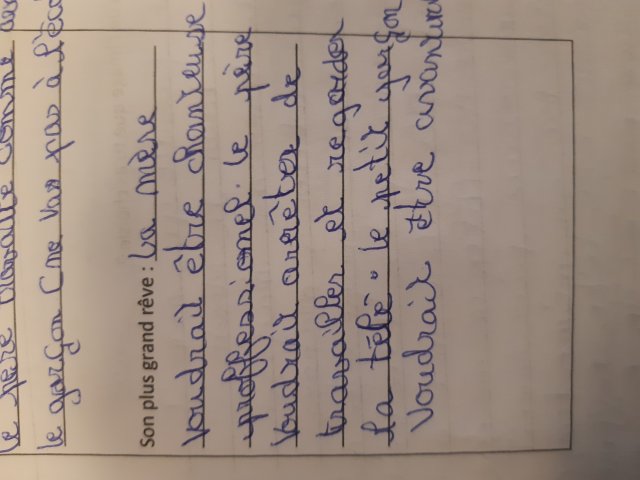 le père travaille comme
le garçon (ne vas pas à l'éc
Son plus grand rêve : La mère
voudrait être chanteuse
proffessionel. le père
voudrait arrêter de
travailler et regarder
la télé. le petit garçon
voudrait être